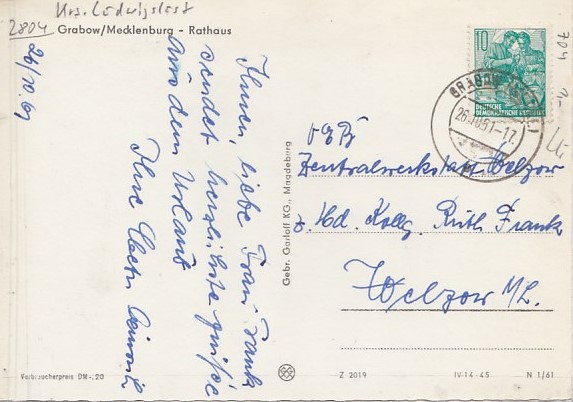 Krs. Ludwigslust
2804
Grabow/Mecklenburg - Rathaus
26/10.61
Ihnen, liebe Frau Frank
sendet herzlichste Grüße
aus dem Urlaub
Ihre
Gebr. Garloff KG., Magdeburg
10
DEUTSCHE
DEMOKRATISCHE REPUBLIK
GRABOW
26.10.61-17
704
VEB
Zentralwerkstatt Welzow
z. Hd. Kollg. Ruth Frank
Welzow N/L.
Verbraucherpreis DM -,20
Z 2019
IV-14-45
N 1/61